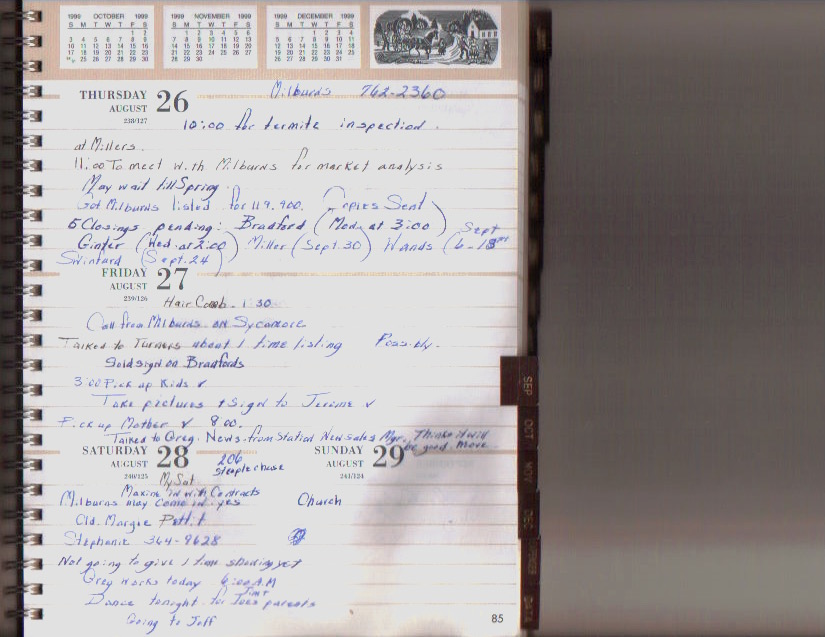 1999 OCTOBER 1999
S M T W T F S
1 2
3 4 5 6 7 8 9
10 11 12 13 14 15 16
17 18 19 20 21 22 23
25 26 27 28 29 30
1999 NOVEMBER 1999
S M T W T F S
1 2 3 4 5 6
7 8 9 10 11 12 13
14 15 16 17 18 19 20
21 22 23 24 25 26 27
28 29 30
1999 DECEMBER 1999
S M T W T F S
1 2 3 4
5 6 7 8 9 10 11
12 13 14 15 16 17 18
19 20 21 22 23 24 25
26 27 28 29 30 31
THURSDAY 26 Milburns 762-2360
AUGUST
238/127
10:00 for termite inspection.
at Millers.
11:00 To meet with Milburns for market analysis
May wait till Spring.
Got Milburns listed for 119,900. Copies Sent
5 Closings pending: Bradford (Mon. at 3:00) Sept
Ginter (Wed. at 2:00) Miller (Sept. 30) Wands (6-13
Swinford (Sept. 24)
FRIDAY 27
AUGUST
239/126
Hair Comb. 1:30
Call from Milburns on Sycamore
Talked to Turners about 1 time listing Possibly.
Sold sign on Bradfords
3:00 Pick up Kids ✓
Take pictures + Sign to Jerome ✓
Pick up Mother ✓ 8:00.
Talked to Greg. News from Station New sales Mgr. Thinks it will
be good move.
SATURDAY 28 206
AUGUST steeplechase
240/125
My Sat.
Maxine in with Contracts
Milburns may come in. yes
Cld. Margie Pettit
Stephanie 364-9628
Not going to give 1 time showing yet
Greg works today 6:00 A.M
Dance tonight for Joes parents
Going to Jeff
SUNDAY 29
AUGUST
241/124
Church
85
SEP
OCT
NOV
DEC